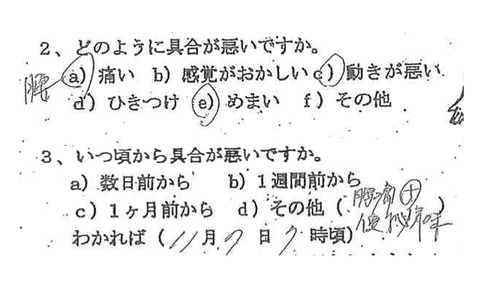 2、どのように具合が悪いですか。
腰 a) 痛い b) 感覚がおかしい c) 動きが悪い
d) ひきつけ e) めまい f) その他
3、いつ頃から具合が悪いですか。
a) 数日前から b) 1週間前から
c) 1ヶ月前から d) その他 ( 腰痛 ⊕ 便秘 )
わかれば ( 11月 7 日 時頃)